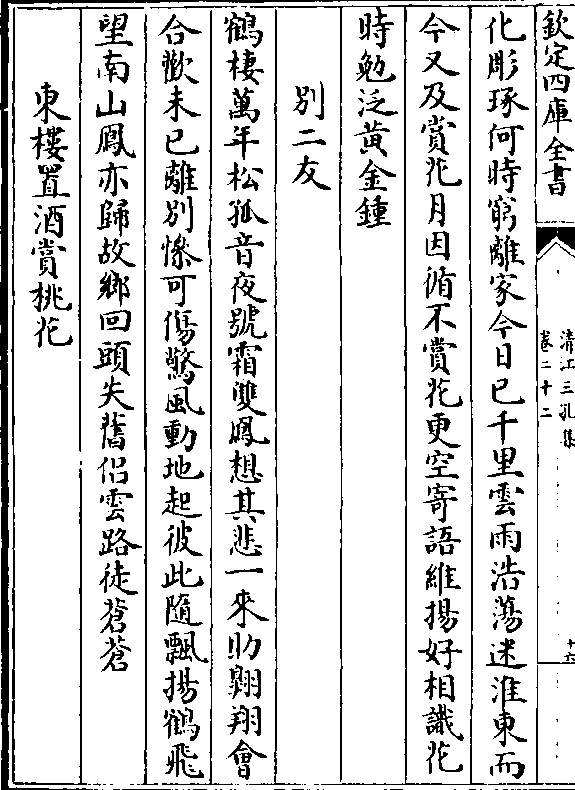 欽定四庫全書
清江三孔集
卷二十二
十六
化彫琢何時窮離家今日已千里雲雨浩蕩迷淮東而
今又及賞花月因循不賞花更空寄語維揚好相識花
時勉泛黃金鍾
別二友
鶴棲萬年松孤音夜號霜雙鳳想其悲一來助翱翔會
合歡未已離別慘可傷驚風動地起彼此隨飄揚鶴飛
望南山鳳亦歸故鄉回頭失舊侣雲路徒蒼蒼
東樓置酒賞桃花